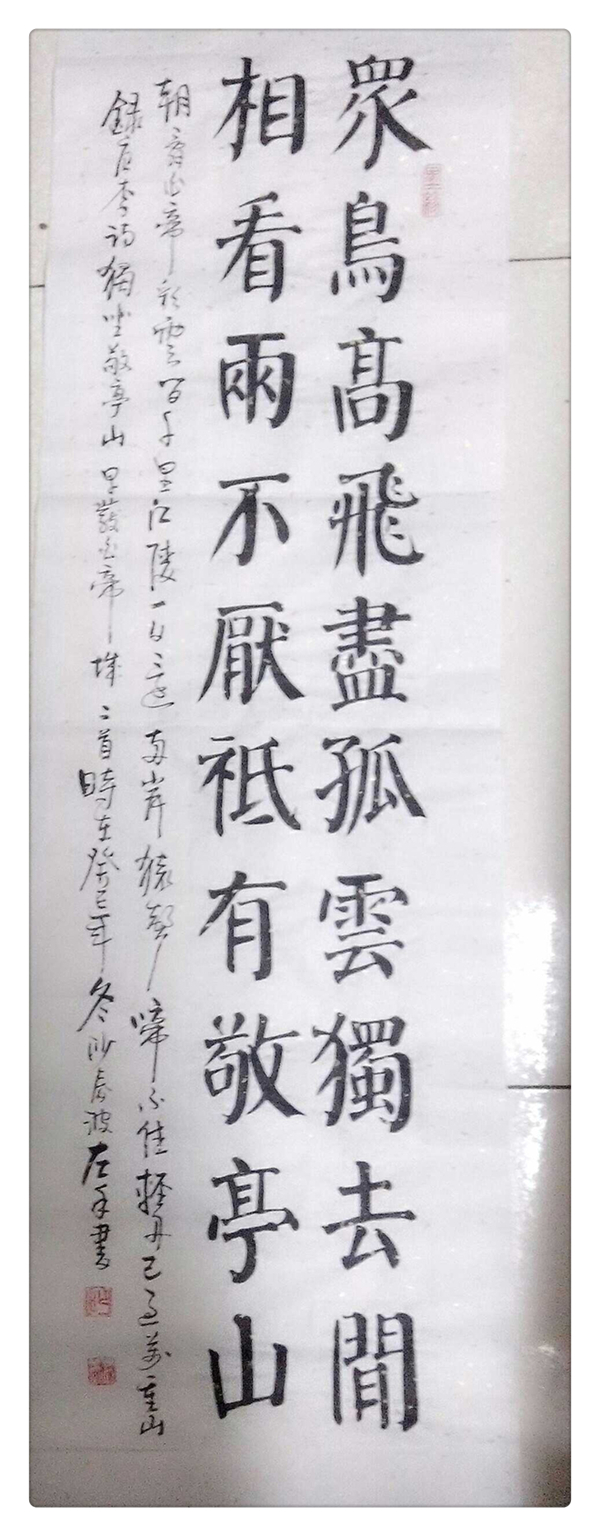 眾鳥髙飛盡孤雲獨去閒
相看兩不厭祗有敬亭山
朝辞白帝彩雲间千里江陵一日还两岸猿聲啼不住輕舟已过萬重山
錄唐李诗獨坐敬亭山早發白帝城二首時在癸巳年冬沙長波左手書